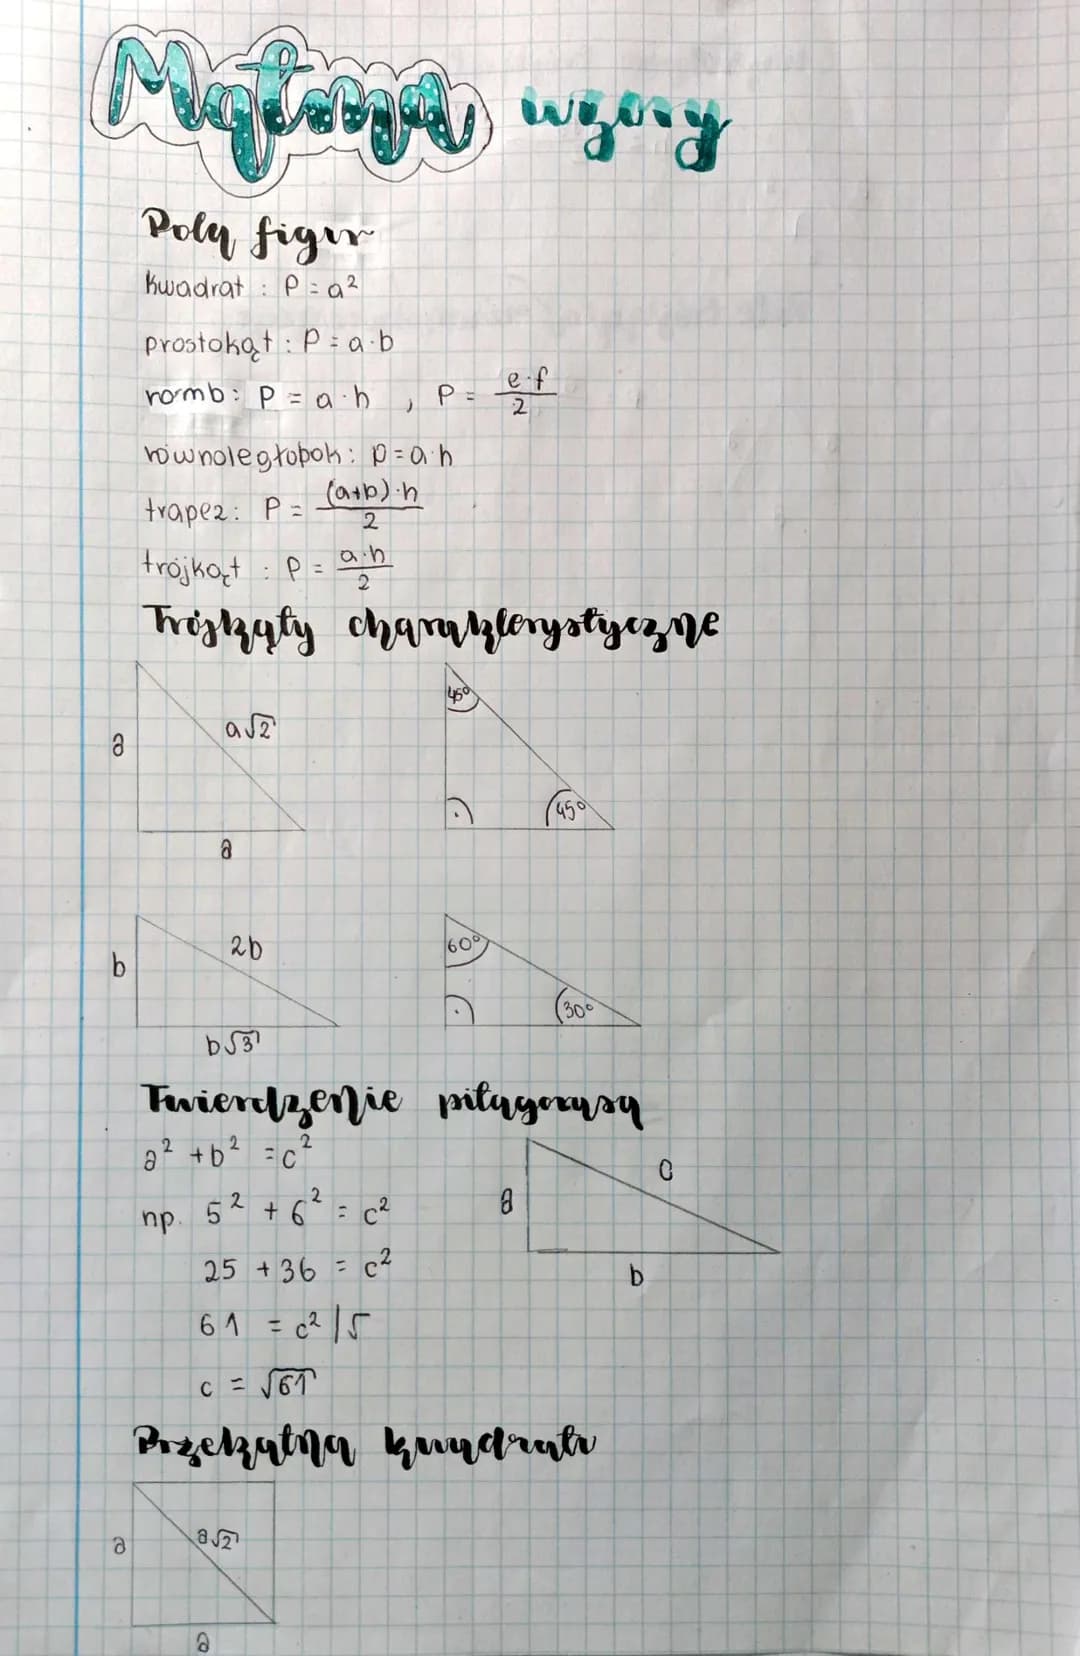 Matma wzory
Pola figur
Kwadrat : P = a²
prostokąt : P = a·b
romb : P = a·h , P = e·f/2
równoległobok : p = a·h
trapez : P = (a+b)·h/2
trójkąt : P = a·h/2
Trójkąty charakterystyczne
a a√2 45°
45°
a
b 2b 60°
30°
b√3
Twierdzenie pitagorasa
a² + b² = c²
np. 5² + 6² = c²
a c
25 + 36 = c²
b
61 = c² |√
c = √61
Przekątna kwadratu
a a√2
a